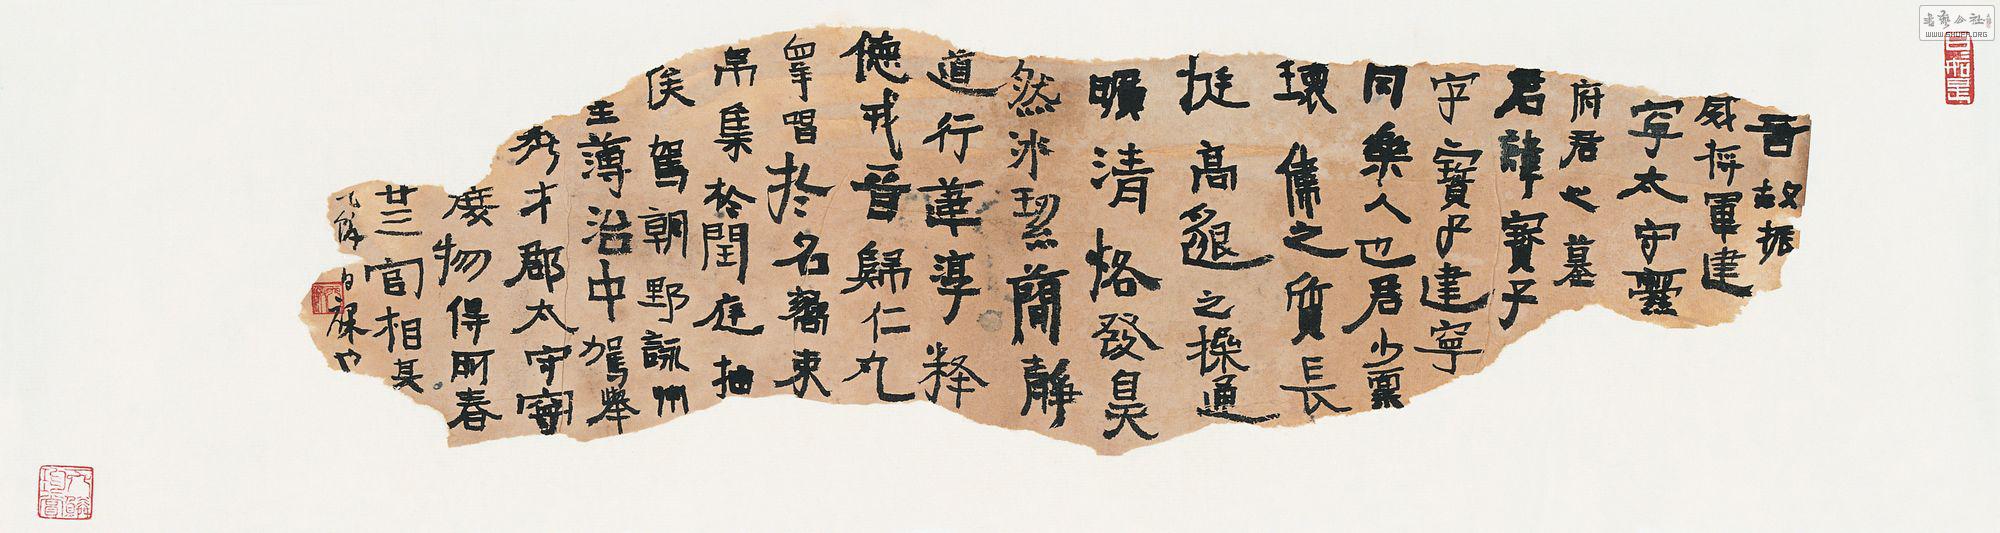 晉故振
威將軍建
寧太守爨
府君之墓
君諱寶子
字寶子建寧
同樂人也君少稟
瓌偉之質長
挺高邈之操通
曠清恪發昊
然冰絜簡靜
道行葦淳粹
德戎晉歸仁九
皋唱於名嚮束
帛集於閨庭抽
俟駕朝野詠州
主薄治中駕舉
秀才郡太守寧
庶物得所春
廿三官相其
自課也
书艺公社
WWW.SHUFA.ORG